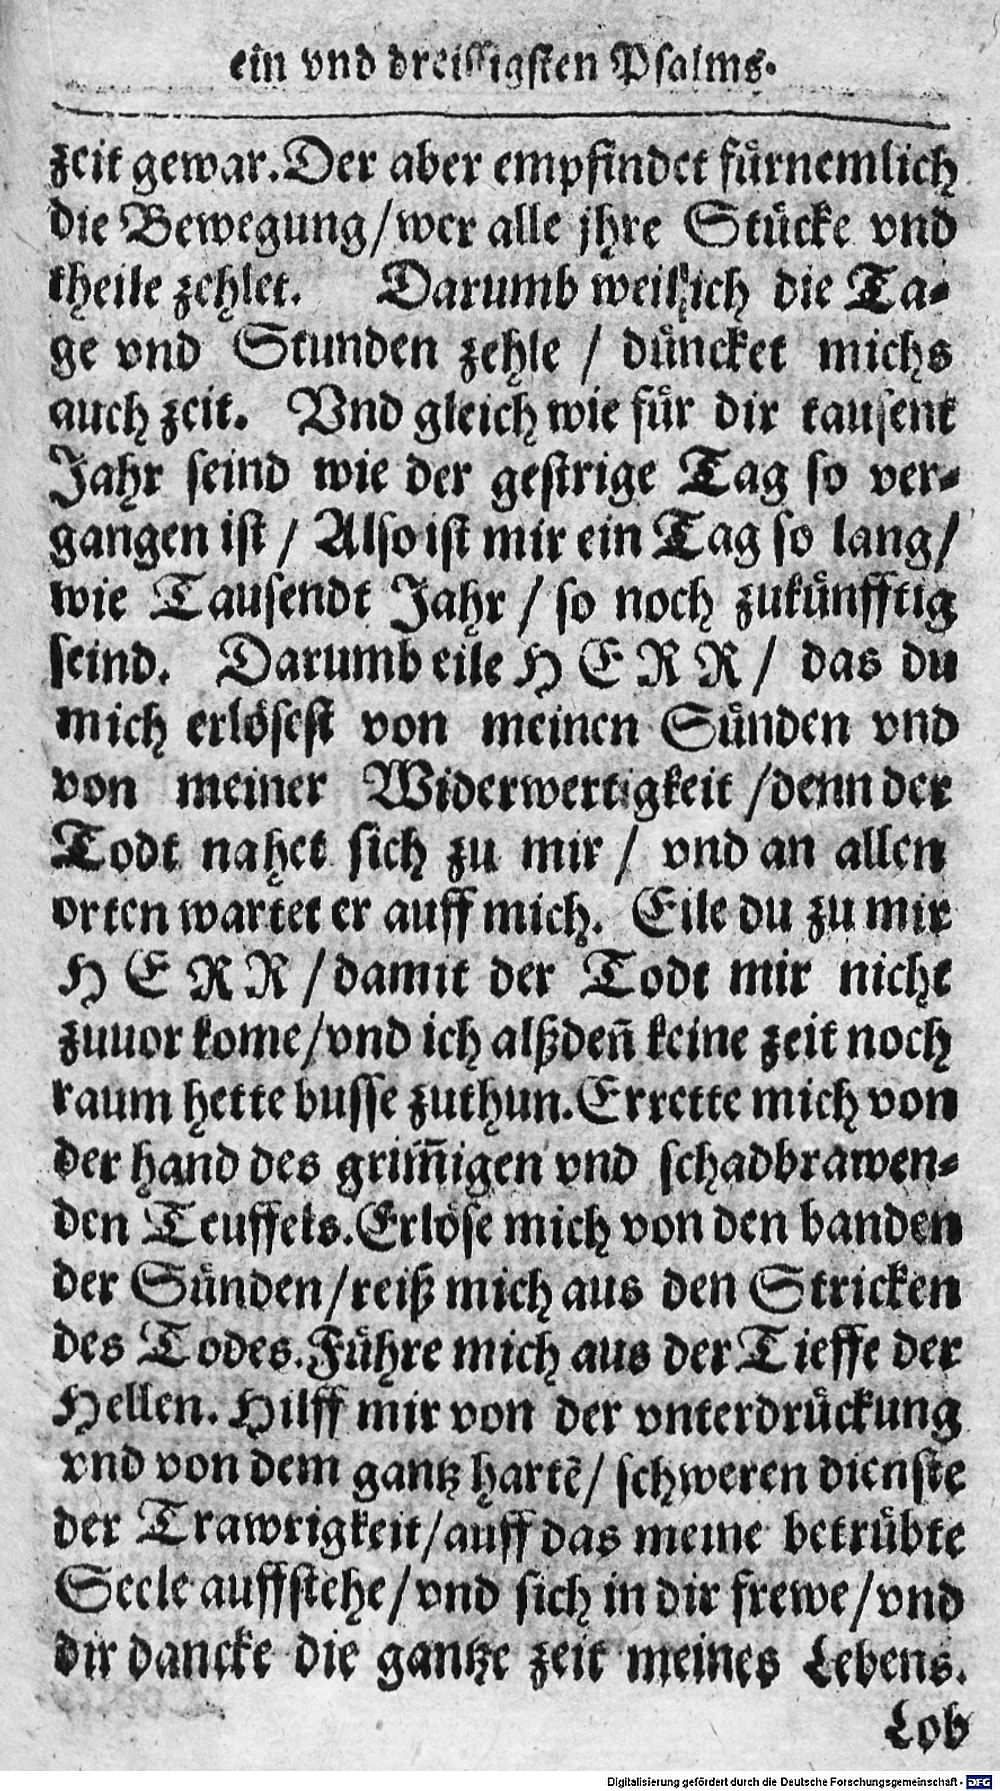 ein vnd dreissigsten Psalms.
zeit gewar. Der aber empfindet fürnemlich
die Bewegung/wer alle jhre Stücke vnd
theile zehlet. Darumb weil ich die Ta-
ge vnd Stunden zehle / düncket michs
auch zeit. Vnd gleich wie für dir tausent
Jahr seind wie der gestrige Tag so ver-
gangen ist / Also ist mir ein Tag so lang/
wie Tausendt Jahr / so noch zukünfftig
seind. Darumb eile HERR / das du
mich erlösest von meinen Sünden vnd
von meiner Widerwertigkeit /denn der
Todt nahet sich zu mir / vnd an allen
orten wartet er auff mich. Eile du zu mir
HERR /damit der Todt mir nicht
zuuor kome/vnd ich alßdeñ keine zeit noch
raum hette busse zuthun. Errette mich von
der hand des grim̃igen vnd schadbrawen-
den Teuffels. Erlöse mich von den banden
der Sünden/reiß mich aus den Stricken
des Todes. Führe mich aus der Tieffe der
Hellen. Hilff mir von der vnterdrückung
vnd von dem gantz hartē/ schweren dienste
der Trawrigkeit/auff das meine betrübte
Seele auffstehe/vnd sich in dir frewe/vnd
dir dancke die gantze zeit meines Lebens.
Lob
Digitalisierung gefördert durch die Deutsche Forschungsgemeinschaft - DFG